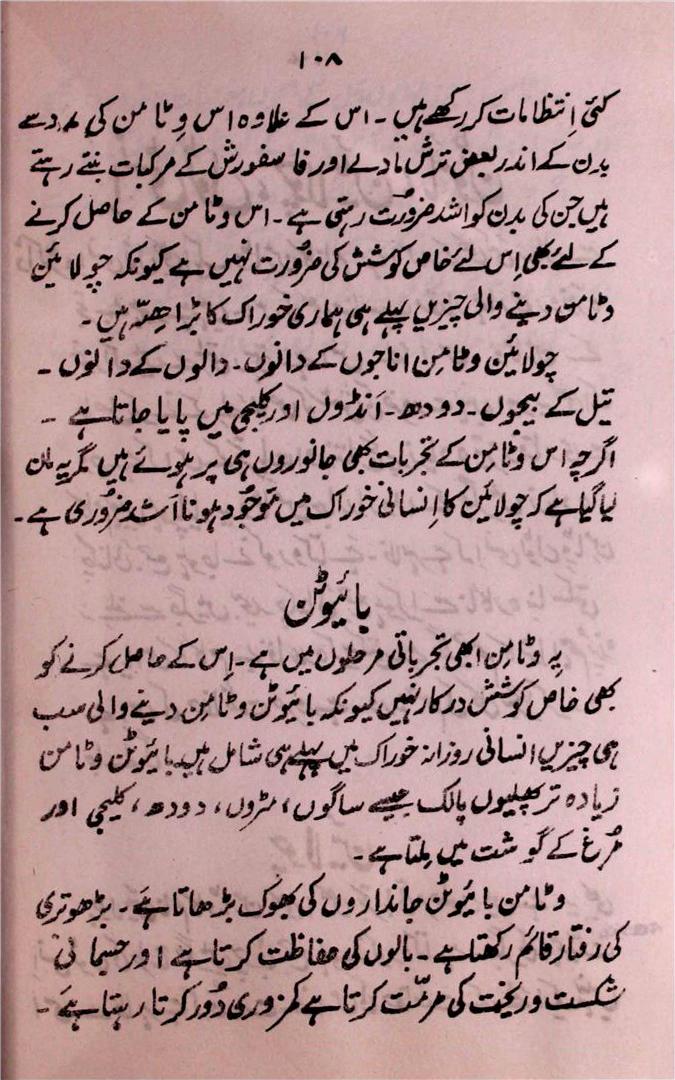 ۱۰۸
کئی اِنتظامات کر رکھے ہیں ۔ اس کے علاوہ اس وِٹامن کی مدد سے
بدن کے اندر بعض ترش مادے اور فاسفورش کے مرکبات بنتے رہتے
ہیں جن کی بدن کو اشد ضرورت رہتی ہے ۔ اس وٹامن کے حاصل کرنے
کے لئے بھی اِس لئے خاص کوشش کی ضرورت نہیں ہے کیونکہ چولائین
وٹامن دینے والی چیزیں پہلے ہی ہماری خوراک کا بڑا حصّہ ہیں ۔
چولائین وٹامِن اناجوں کے دانوں ۔ دالوں کے دانوں ۔
تیل کے بیجوں ۔ دودھ ۔ اَنڈوں اور کلیجی میں پایا جاتا ہے ۔
اگرچہ اس وٹامِن کے تجربات بھی جانوروں ہی پر ہوئے ہیں مگر یہ مان
لیا گیا ہے کہ چولائین کا اِنسانی خوراک میں موجُود ہونا اَشد ضرُوری ہے ۔
بائیوٹن
یہ وٹامِن ابھی تجرباتی مرحلوں میں ہے ۔ اِس کے حاصل کرنے کو
بھی خاص کوشش درکار نہیں کیونکہ بائیوٹن وٹامِن دینے والی سب
ہی چیزیں انسانی روزانہ خوراک میں پہلے ہی شامل ہیں بائیوٹن وٹامن
زیادہ تر پھلیوں پالک جیسے ساگوں، مٹروں، دودھ، کلیجی اور
مُرغ کے گوشت میں مِلتا ہے ۔
وٹامن بائیوٹن جانداروں کی بھوک بڑھاتا ہے ۔ بڑھوتری
کی رفتار قائم رکھتا ہے ۔ بالوں کی حفاظت کرتا ہے اور جسمانی
شکست و ریخت کی مرمّت کرتا ہے کمزوری دُور کرتا رہتا ہے ۔